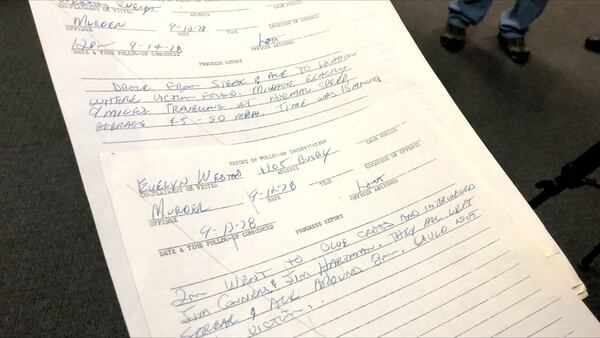 MURDER 9-12-78
OFFENSE DATE TIME LOCATION OF OFFENSE
12pm 9-14-78
DATE & TIME FOLLOW-UP CONDUCTED OFFICER ASSIGNED
PROGRESS REPORT
DROVE FROM STEAK & ALE TO LOCATION
WHERE VICTIM FOUND. MILEAGE EXACTLY
9 MILES. TRAVELING AT NORMAL SPEED,
AVERAGE 45-50 MPH. TIME WAS 15 MINUTES
REPORT OF FOLLOW-UP INVESTIGATION
EVELYN 1205 BUSBY
COMPLAINANT OR VICTIM ADDRESS CASE NUMBER
MURDER 9-12-78
OFFENSE DATE TIME LOCATION OF OFFENSE
9-12-78
DATE & TIME FOLLOW-UP CONDUCTED OFFICER ASSIGNED
PROGRESS REPORT
2pm WENT TO BLUE CROSS AND INTERVIEWED
JIM & JIM HARTMAN. THEY ALL LEFT
STEAK & ALE AROUND 8pm. COULD NOT
VICTIM.